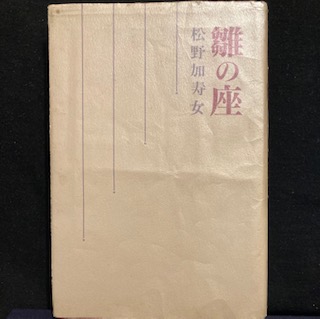 雛の座
松野加寿女